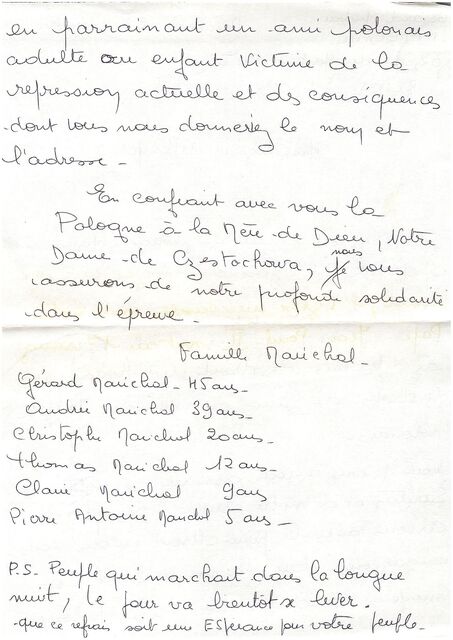 en parrainant un ami polonais
adulte ou enfant victime de la
repression actuelle et des conséquences
dont vous nous donneriez le nom et
l'adresse -
En confiant avec vous la
Pologne à la Mère de Dieu, Notre
Dame de Czestochowa, nous vous
assurons de notre profonde solidarité
dans l'épreuve -
Famille Marichal -
Gérard Marichal - 45 ans -
Andrée Marichal 39 ans -
Christophe Marichal 20 ans -
Thomas Marichal 12 ans -
Claire Marichal 9 ans
Pierre Antoine Marichal 5 ans -
P.S. Peuple qui marchait dans la longue
nuit, le jour va bientôt se lever.
- que ce refrain soit une Espérance pour votre peuple -